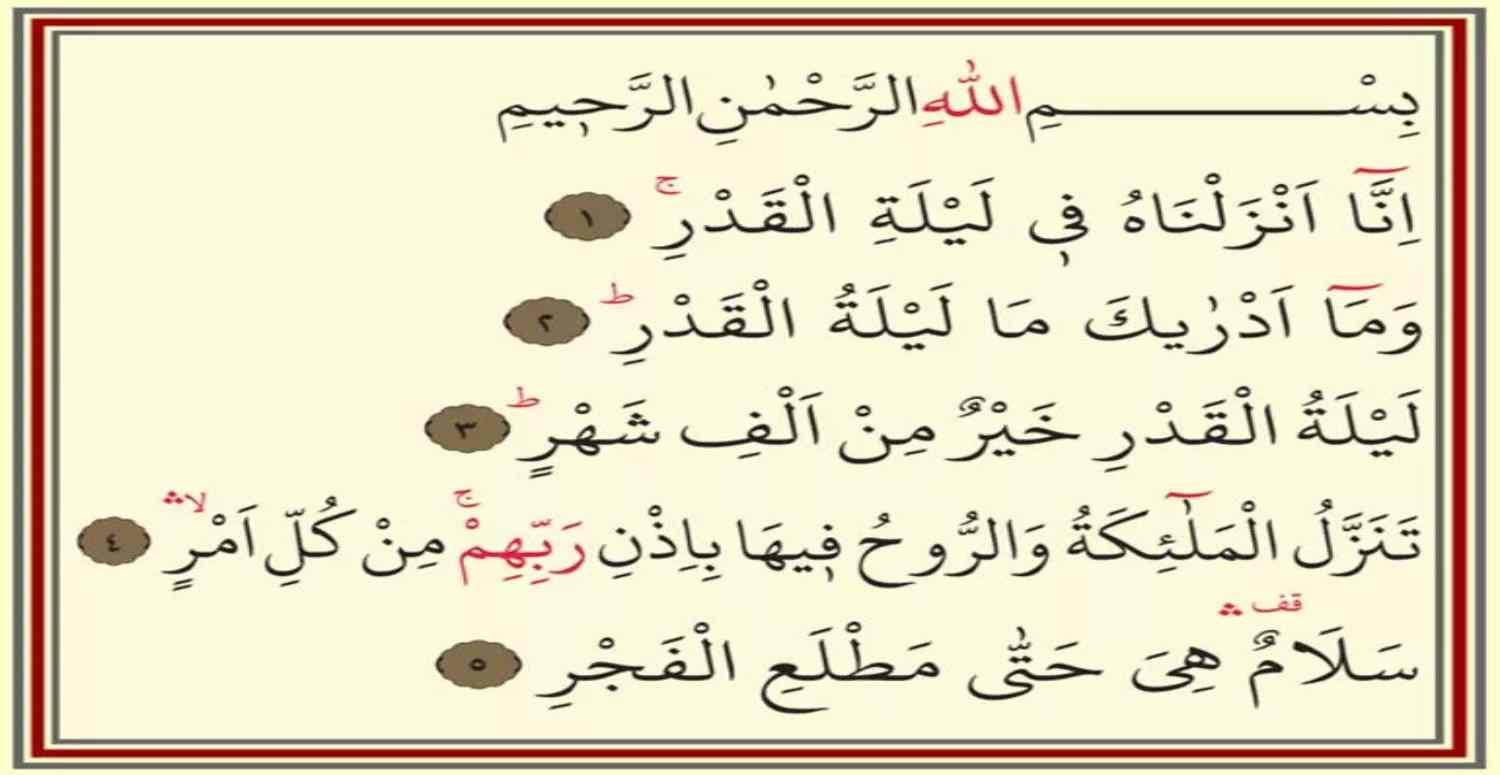 بِسْــــــــــمِ اللّٰهِ الرَّحْمٰنِ الرَّحٖيمِ
اِنَّٓا اَنْزَلْنَاهُ فٖي لَيْلَةِ الْقَدْرِۚ ١
وَمَٓا اَدْرٰيكَ مَا لَيْلَةُ الْقَدْرِۜ ٢
لَيْلَةُ الْقَدْرِ خَيْرٌ مِنْ اَلْفِ شَهْرٍۜ ٣
تَنَزَّلُ الْمَلٰٓئِكَةُ وَالرُّوحُ فٖيهَا بِاِذْنِ رَبِّهِمْۚ مِنْ كُلِّ اَمْرٍۙۛ ٤
سَلَامٌ۠ۛ هِيَ حَتّٰى مَطْلَعِ الْفَجْرِ ٥